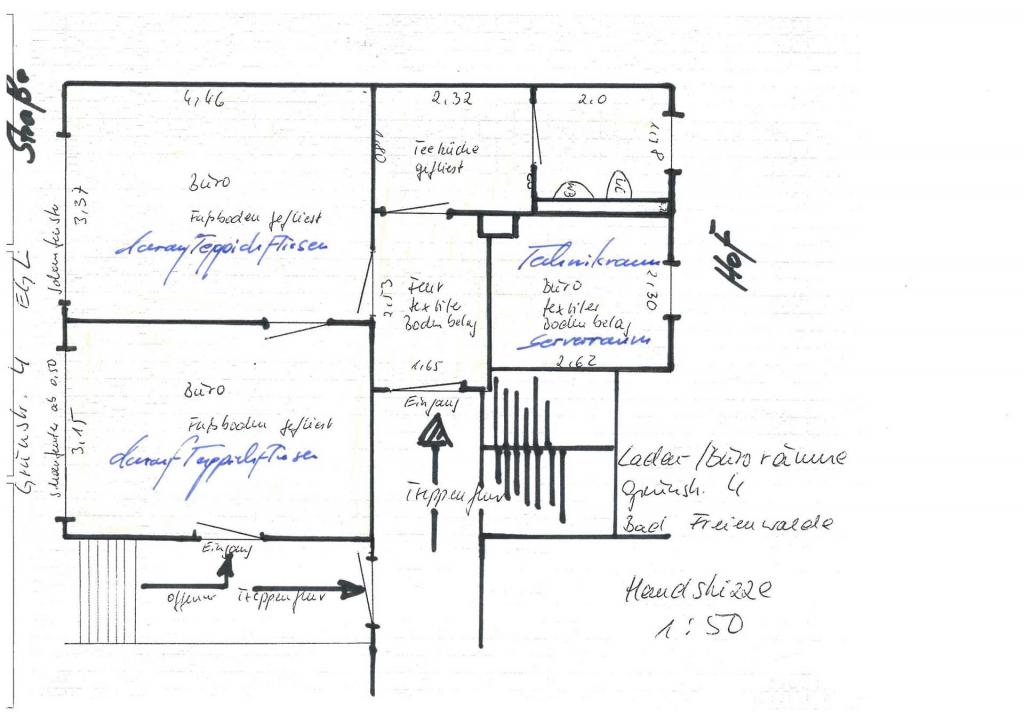 Straße
4,46
2,32
2,0
1,80
Teeküche
gefliest
1,98
WB
WC
Büro
3,37
Fußboden gefliest
darauf Teppichfliesen
Schaufenster
EG L
Grünstr. 4
Flur
textiler
Bodenbelag
2,53
1,65
Technikraum
Büro
textiler
Bodenbelag
Serverraum
2,30
2,62
Hof
Büro
3,15
Schaufenster ab 0,50
Fußboden gefliest
darauf Teppichfliesen
Eingang
Treppenflur
Eingang
offener Treppenflur
Laden-/Büroräume
Grünstr. 4
Bad Freienwalde
Handskizze
1:50